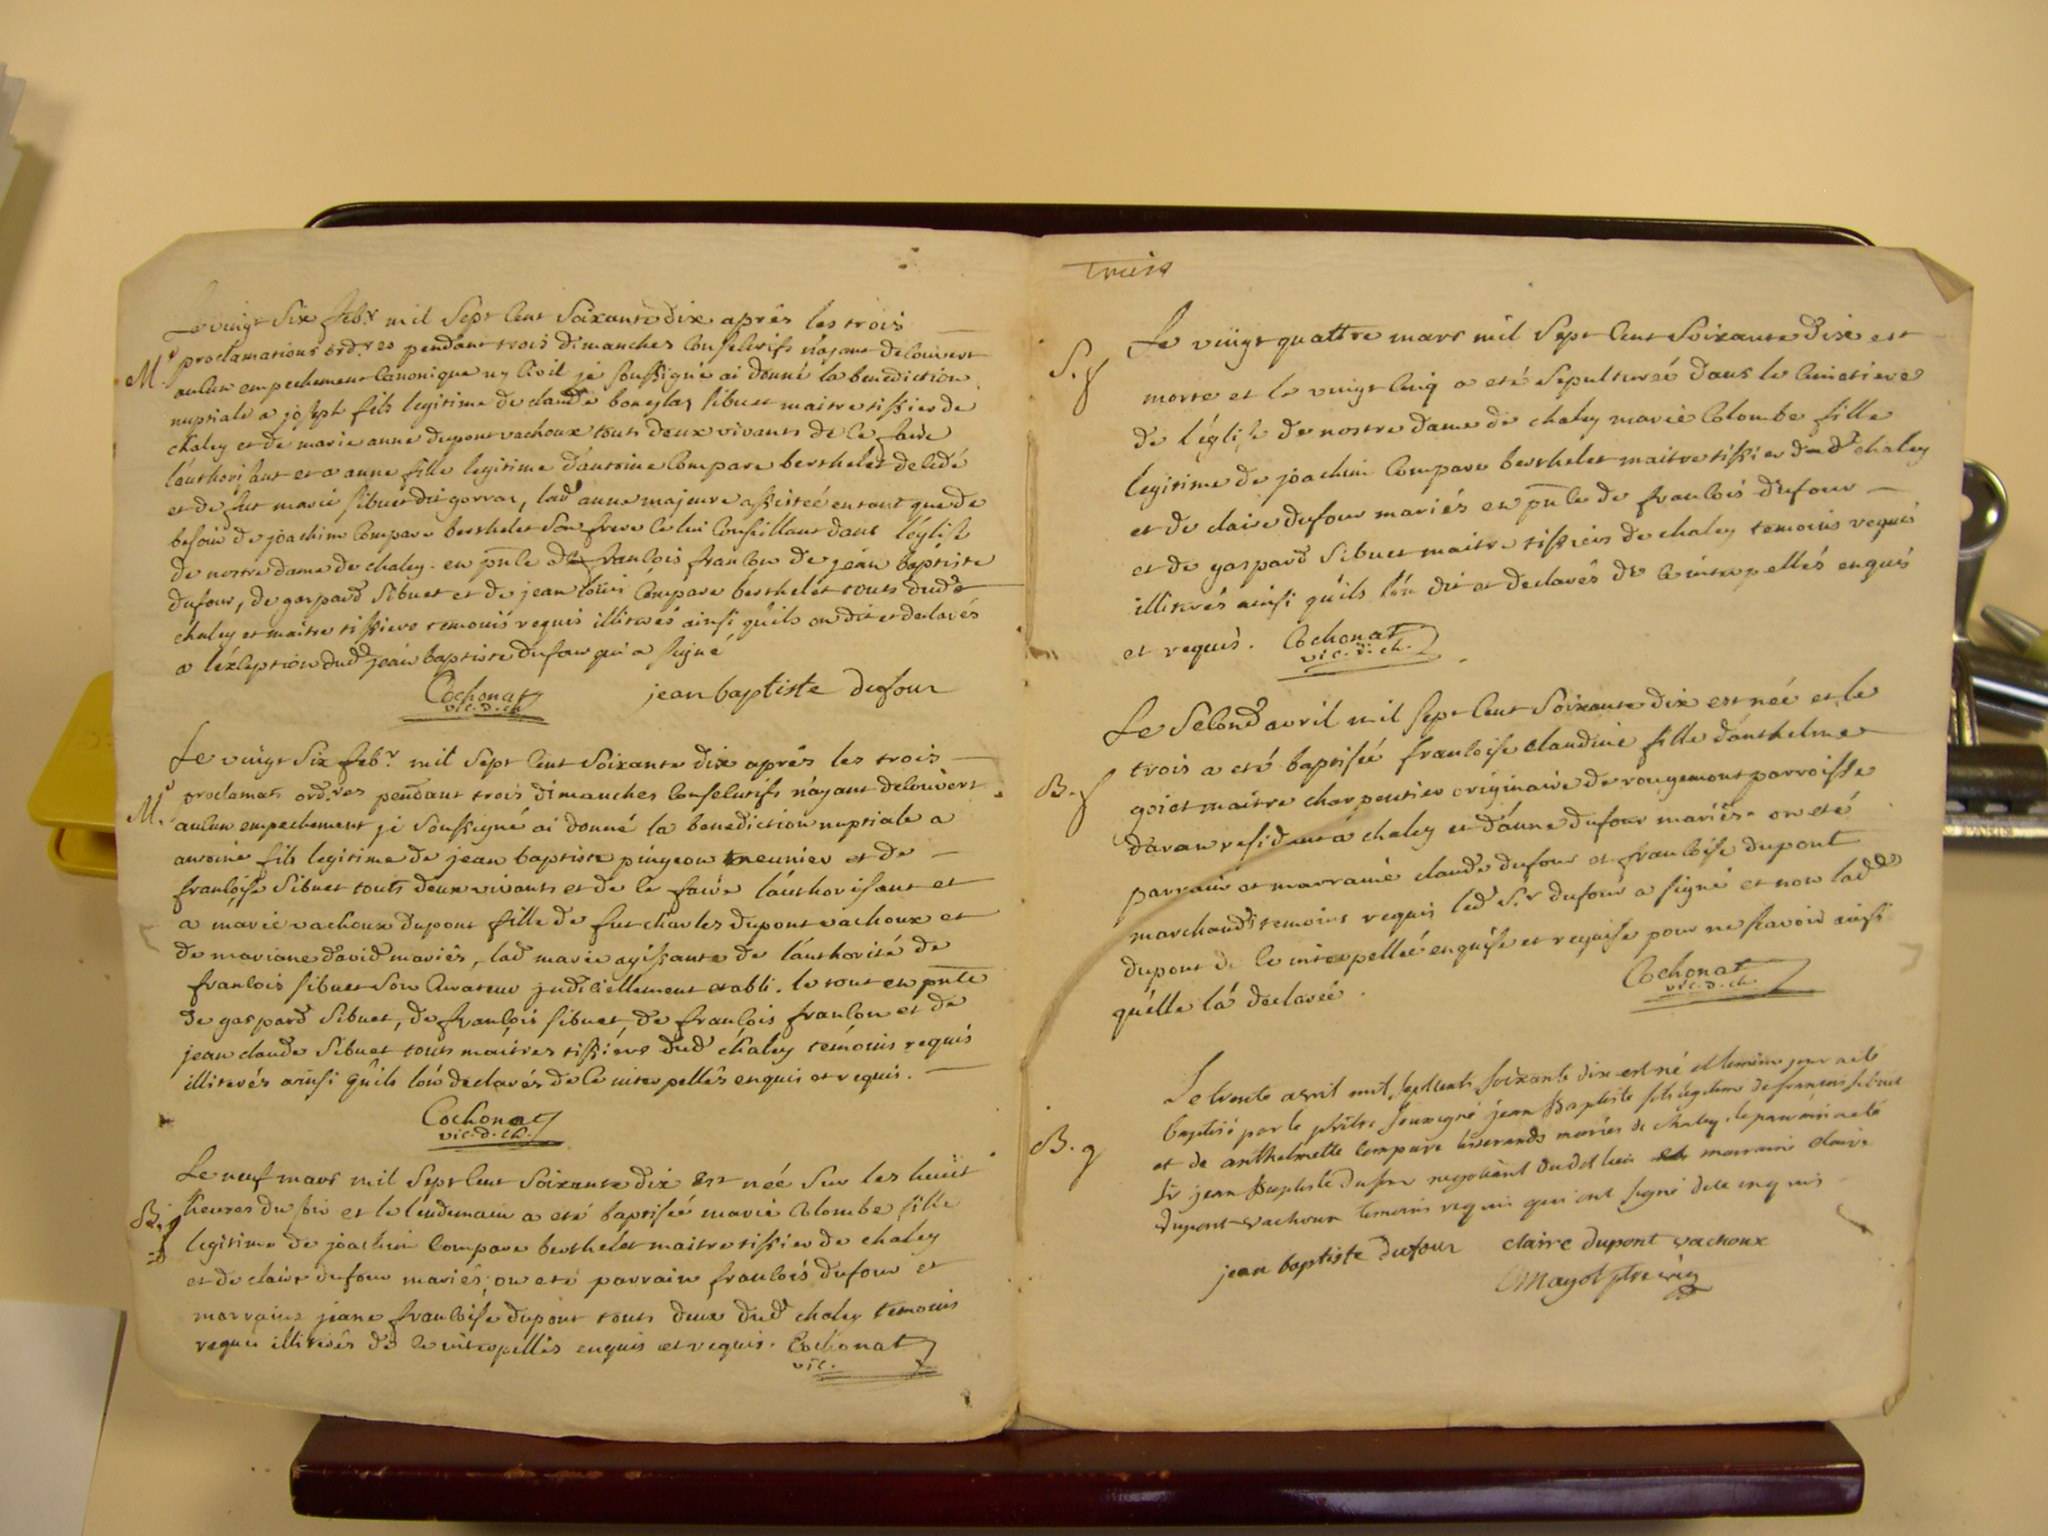 Le vingt six feb.r mil sept cent soixante dix aprés les trois
M. proclamations ord.res pendant trois dimanches consecutifs n'ayant decouvert
aucun empechement canonique ny civil je soussigné ai donné la benediction
nuptiale a joseph fils legitime de claude sibuet maitre tissier de
chaley et de marie anne dupont vachoux touts deux vivants de ce faire
l'authorisant et a anne fille legitime d'antoine Compare berthelet decedé
et de fut marie sibuet dit gorraz, lad anne majeure assisteé en tant que de
besoin de joachim Compare berthelet son frere ce lui Conseillant dans l'église
de nostre dame de chaley. en pnce de francois francon de jean baptiste
dufour, de gaspard sibuet et de jean loüis Compare berthelet touts dud
chaley et maitre tissiers temoins requis illiterés ainsi qu'ils on dit et declarés
a l'exception dud jean baptiste dufour qui a signé
Cochonat jean baptiste dufour
vic. d. ch.
Le vingt six feb.r mil sept cent soixante dix aprés les trois
M. proclamats ord.res pendant trois dimanches consecutifs n'ayant decouvert
aucun empechement je soussigné ai donné la benediction nuptiale a
antoine fils legitime de jean baptiste pingeon meunier et de
francoise sibuet touts deux vivants et de ce faire l'authorisant et
a marie vachoux dupont fille de fut charles dupont vachoux et
de mariane david mariés, lad marie agissante de l'authorité de
francois sibuet son Curateur judiciellement etabli. le tout en pnce
de gaspard sibuet, de francois sibuet, de francois francon et de
jean claude sibuet touts maitres tissiers dud chaley temoins requis
illiterés ainsi qu'ils lon declarés de ce interpellés enquis et requis.
Cochonat
vic. d. ch.
Le neuf mars mil sept cent soixante dix est née sur les huit
B. heures du soir et le lendemain a eté baptisée marie Colombe fille
legitime de joachim Compare berthelet maitre tissier de chaley
et de claire dufour mariés, on eté parrain francois dufour et
marraine jeane francoise dupont touts deux dud chaley temoins
requis illiterés de ce interpellés enquis et requis. Cochonat
vic.
Trois
Le vingt quattre mars mil sept cent soixante dix est
S. f morte et le vingt cinq a eté sepultureé dans le cimetiere
de l'église de nostre dame de chaley marie Colombe fille
legitime de joachim Compare berthelet maitre tissier dud chaley
et de claire dufour mariés en pnce de francois dufour
et de gaspard sibuet maitre tissiers de chaley temoins requis
illiterés ainsi qu'ils lon dit et declarés de ce interpellés enquis
et requis. Cochonat
vic. d. ch.
Le second avril mil sept cent soixante dix est née et le
trois a eté baptisée francoise claudine fille d'anthelme
B. f goiet maitre charpentier originaire de rougemont parroisse
d'aran resident a chaley et d'anne dufour mariés on eté
parrain et marraine claude dufour et francoise dupont
marchands temoins requis led S.r dufour a signé et non lad
dupont de ce interpelleé enquise et requise pour ne scavoir ainsi
qu'elle la declareé.
Cochonat
vic. d. ch.
Le trente avril mil sept cents soixante dix est né et le meme jour a eté
B. g baptisé par le prêtre soussigné jean Baptiste fils legitime de francois sibuet
et de anthelmette compare tisserands mariés de chaley. le parrain a eté
Sr jean Baptiste dufour negotiant dudt lieu marraine claire
dupont vachoux temoins requis qui ont signé de ce enquis
jean baptiste dufour claire dupont vachoux
Mayol ptre